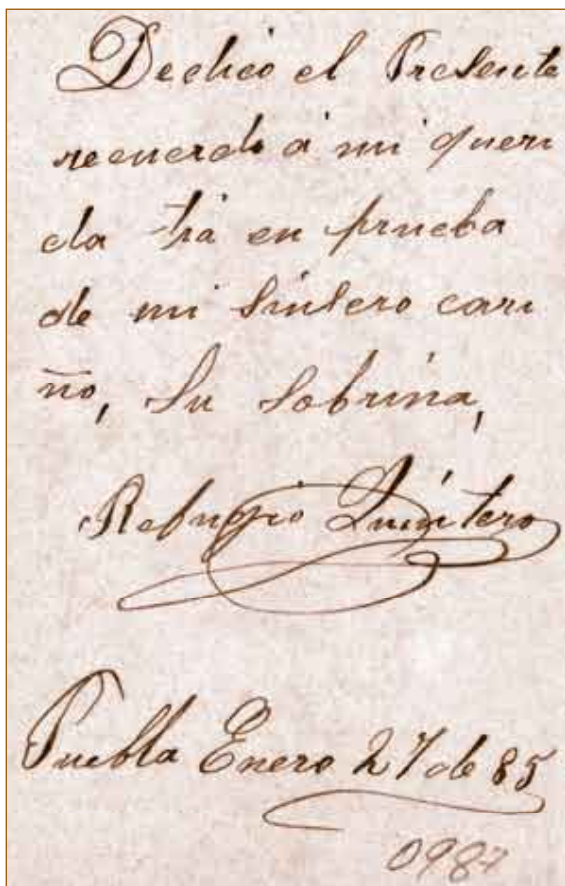 Dedicó el Presente
recuerdo á mi queri
da tia en prueba
de mi sinsero cari
ño, Su Sobrina,
Refugio Quintero
Puebla Enero 27 de 85
0987